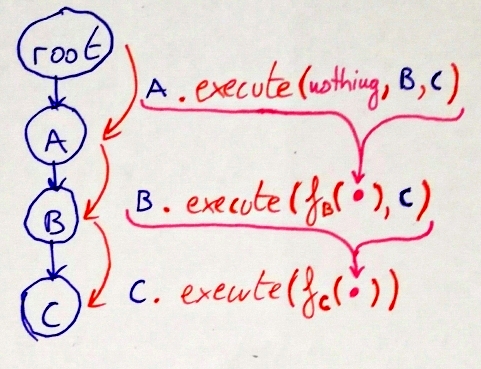 root
A
A.execute(nothing, B, C)
B
B.execute(f_B(•), C)
C
C.execute(f_C(•))